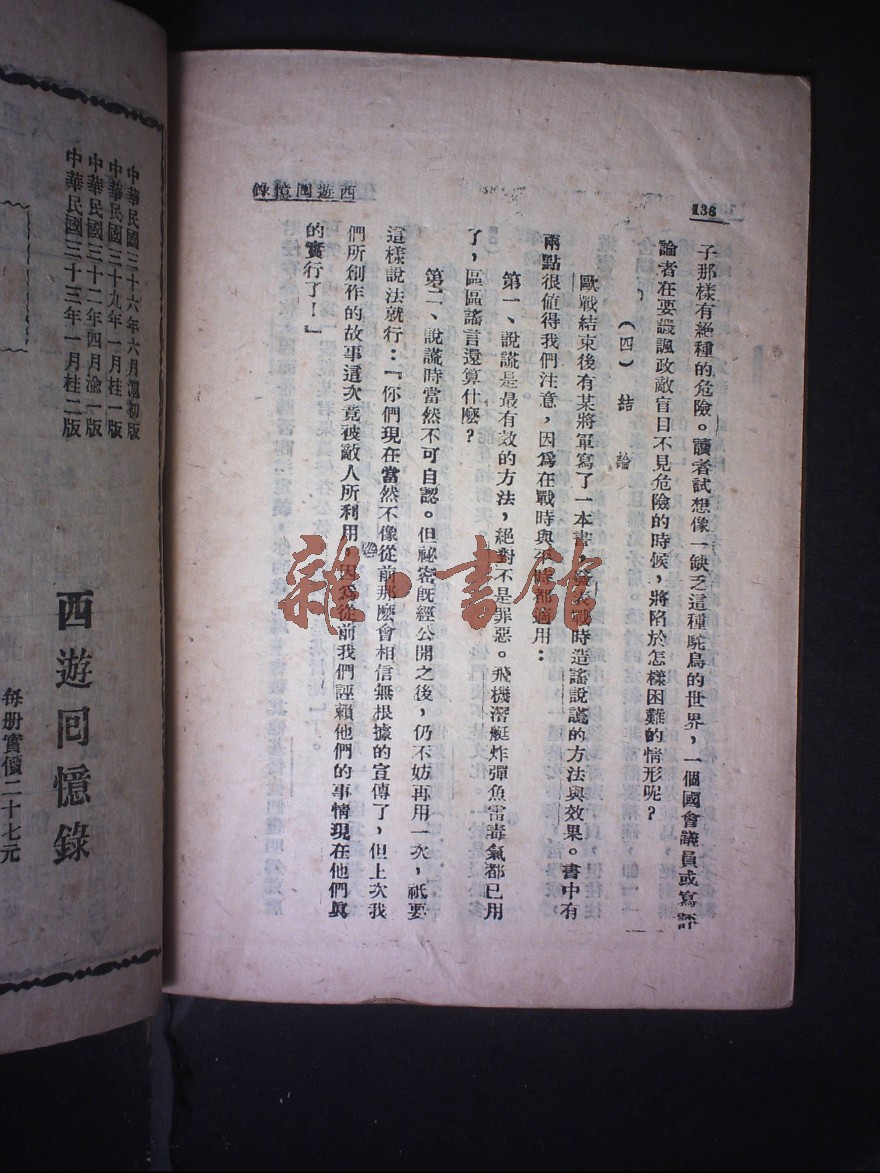 138
西遊回憶錄
子那樣有絕種的危險。讀者試想像一缺乏這種駝鳥的世界,一個國會議員或寫評
論者在要譏諷政敵盲目不見危險的時候,將陷於怎樣困難的情形呢?
(四) 結論
歐戰結束後有某將軍寫了一本書,發表戰時造謠說謊的方法與效果。書中有
兩點很値得我們注意,因爲在戰時與平時都適用:
第一、說謊是最有效的方法,絕對不是罪惡。飛機潛艇炸彈魚雷毒氣都已用
了,區區謠言還算什麽?
第二、說謊時當然不可自認。但祕密旣經公開之後,仍不妨再用一次,祇要
這樣說法就行:『你們現在當然不像從前那麽會相信無根據的宣傳了,但上次我
們所創作的故事這次竟被敵人所利用,因爲從前我們誣賴他們的事情現在他們眞
的實行了!』
中華民國三十六年六月滬初版
中華民國三十九年一月桂一版
中華民國三十二年四月渝一版
中華民國三十三年一月桂二版
西遊回憶錄
每册實價二十七元
雜·書館